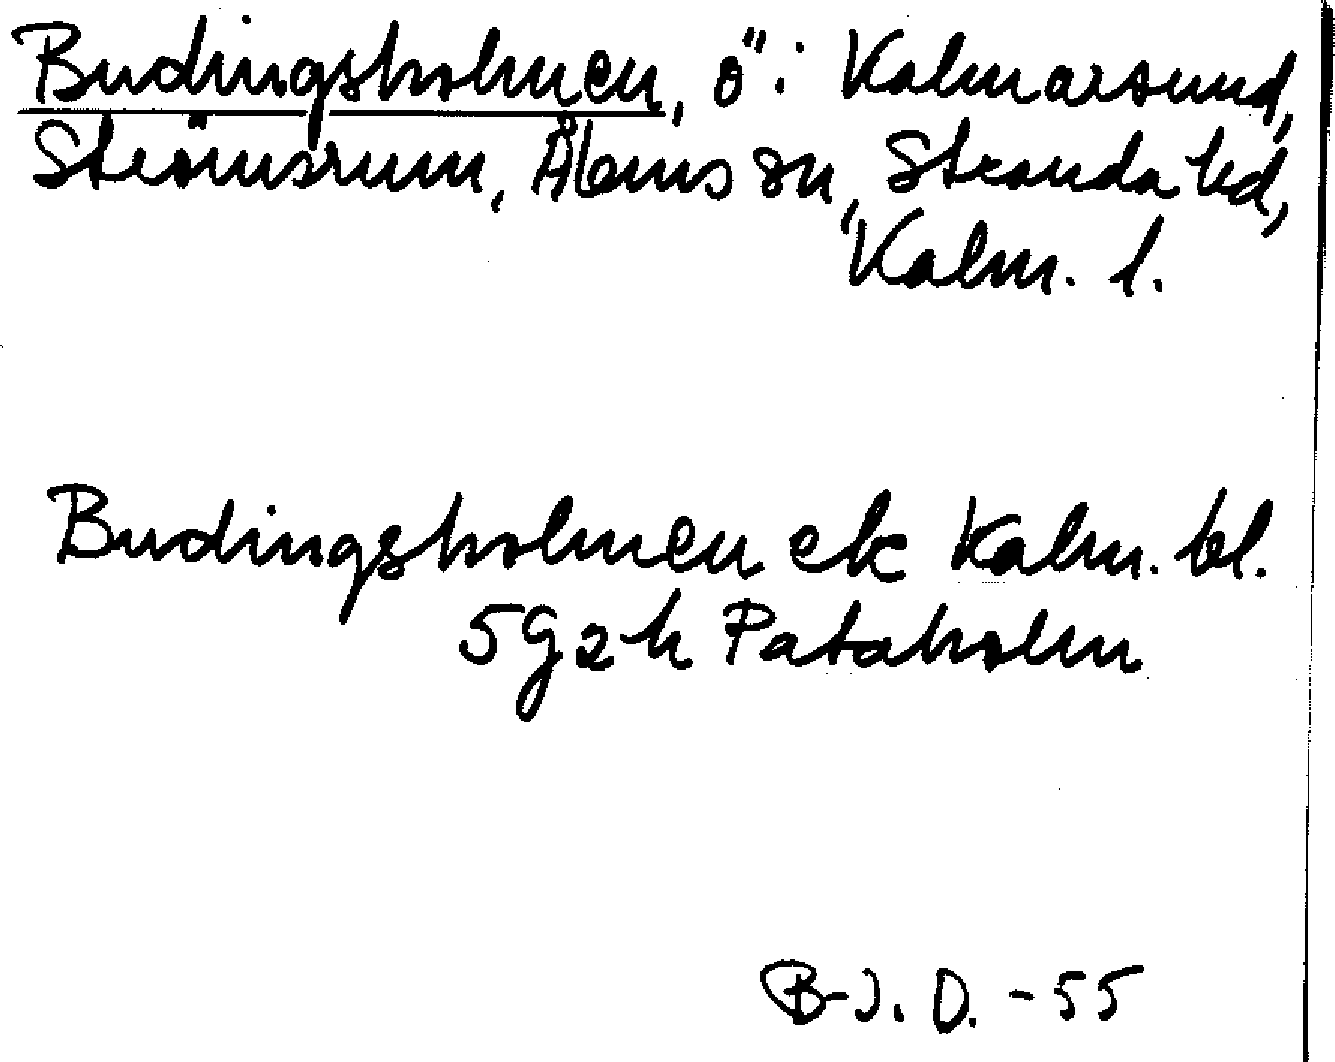 Budingsholmen, ö i Kalmarsund,
Strömsrum, Ålems sn, Stranda hd,
Kalm. l.
Budingsholmen ek Kalm. bl.
5G2h Pataholm
B-I. D. -55